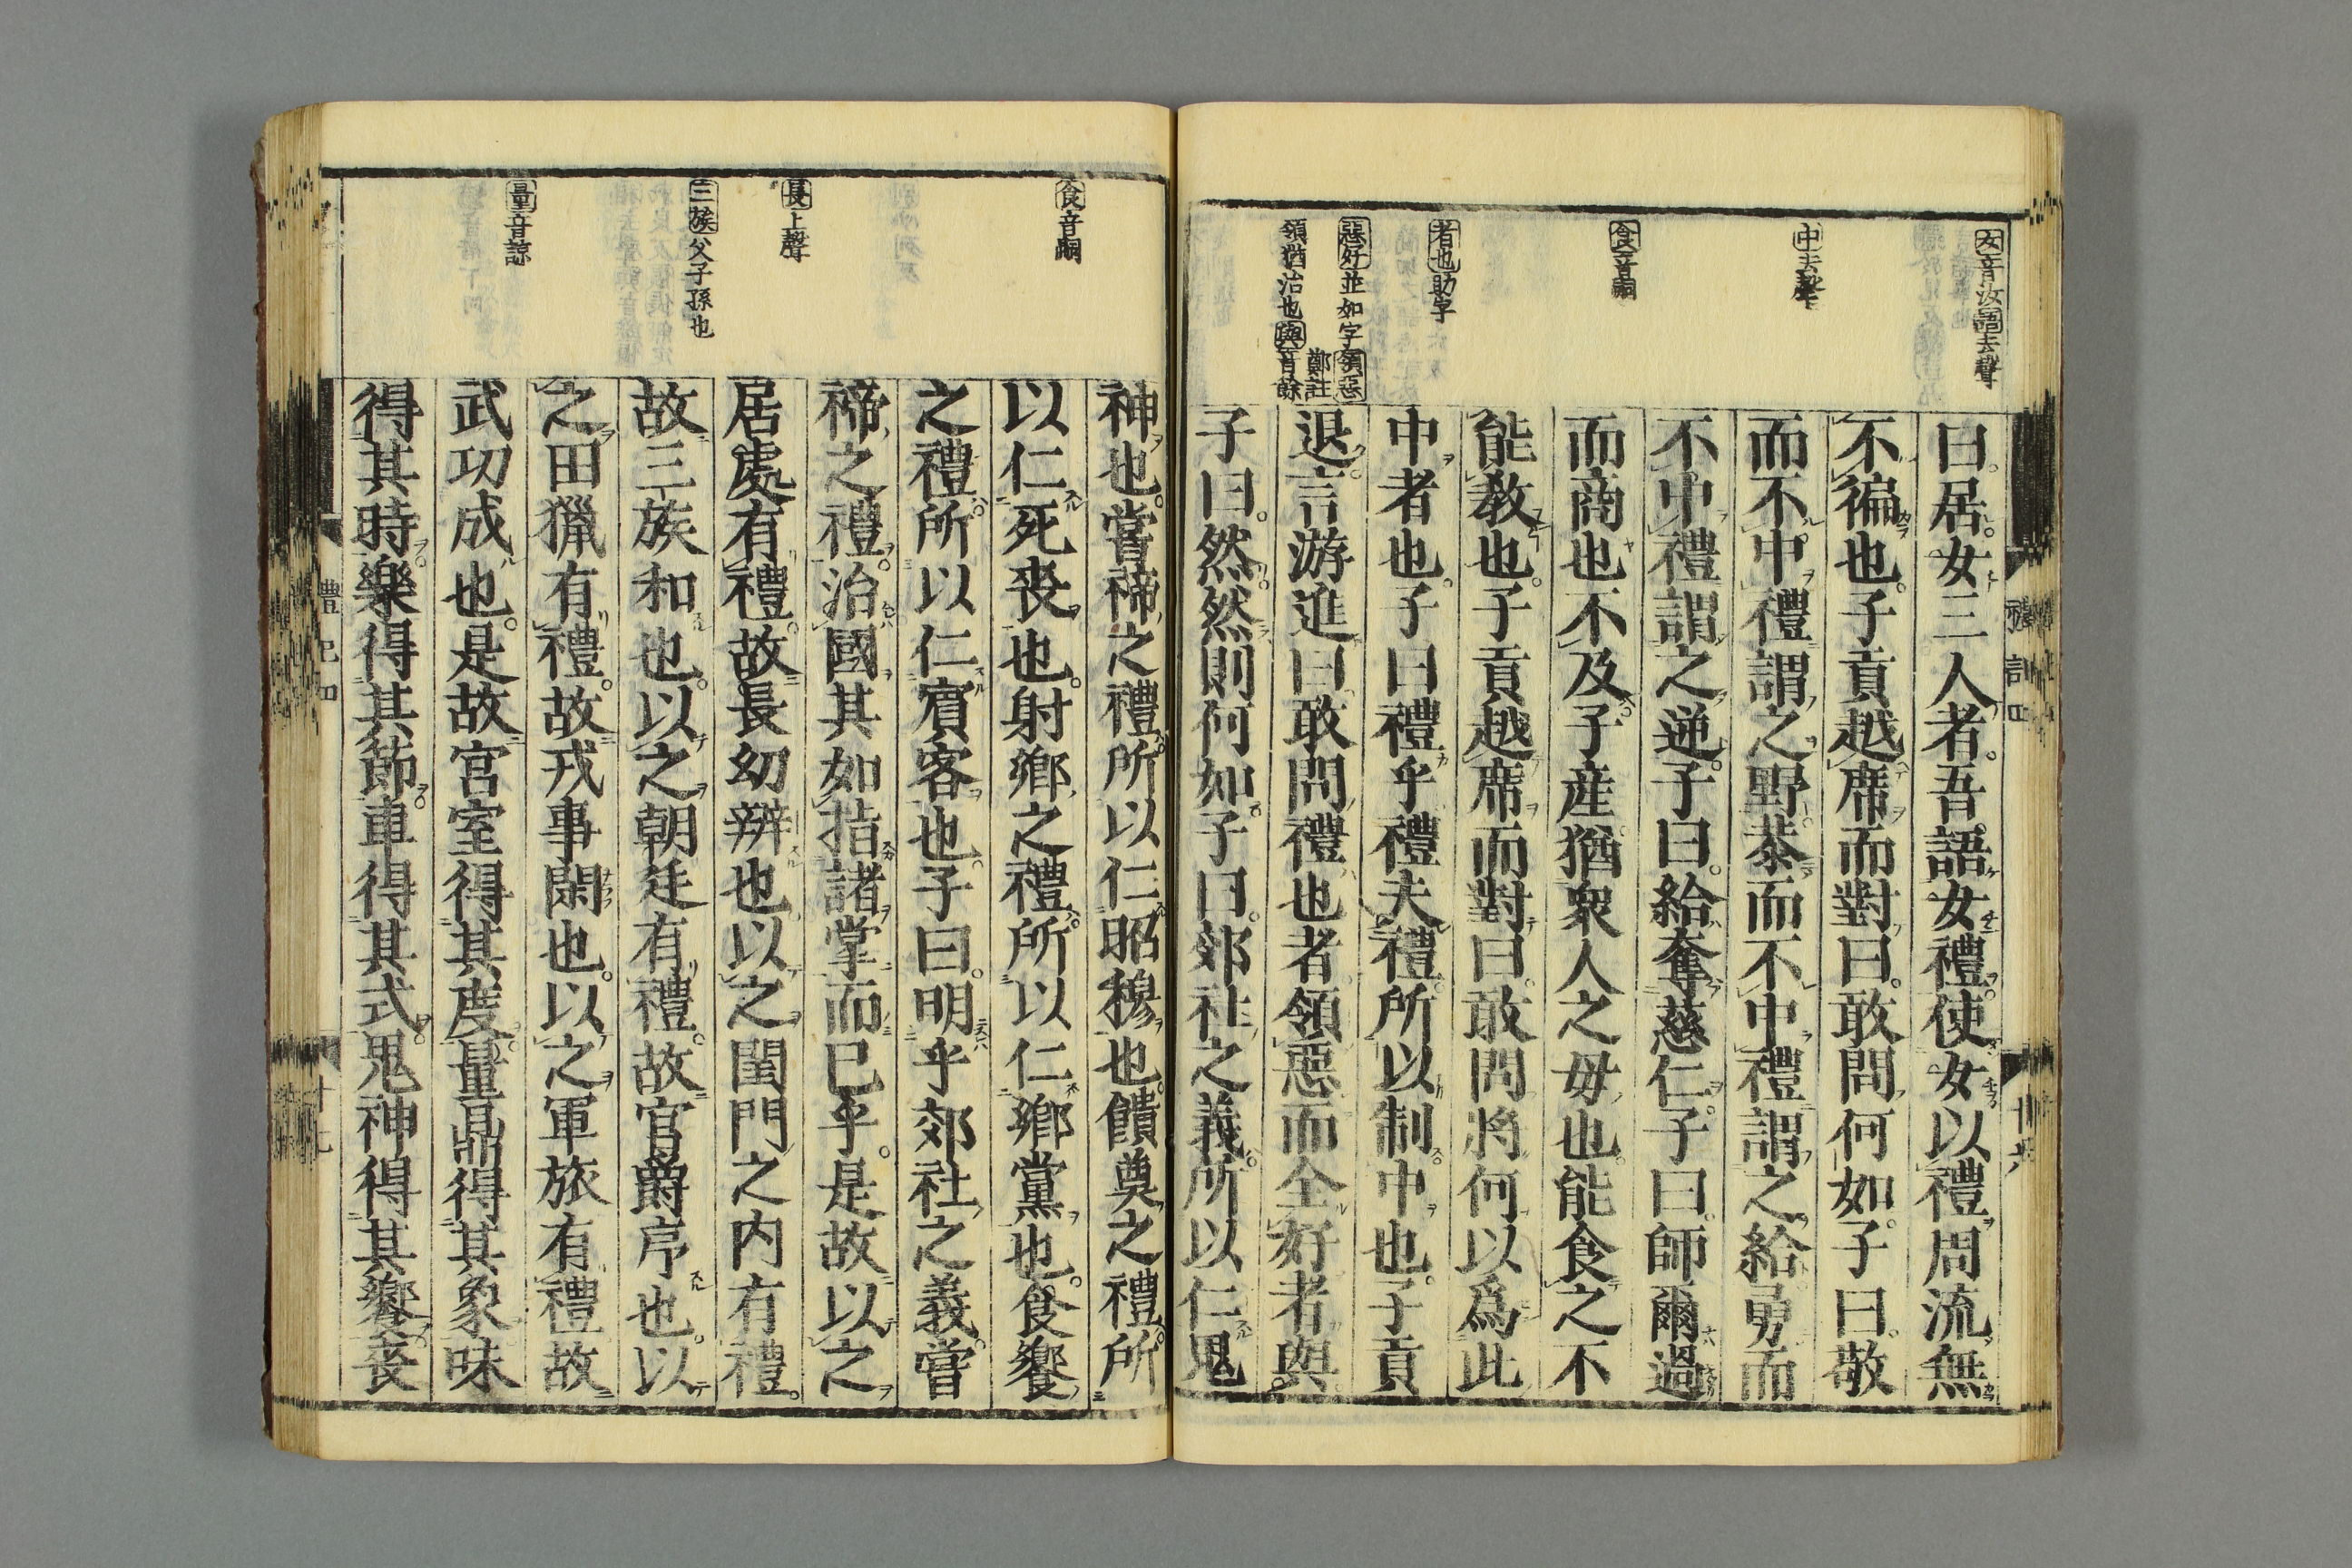 女音汝語去聲
中去聲
食音嗣
者也助字
惡好並如字領惡
鄭註
領猶治也與音餘
曰居女三人者吾語女禮使女以禮周流無
不徧也子貢越席而對曰敢問何如子曰敬
而不中禮謂之野恭而不中禮謂之給勇而
不中禮謂之逆子曰給奪慈仁子曰師爾過
而商也不及子產猶衆人之母也能食之不
能教也子貢越席而對曰敢問將何以爲此
中者也子曰禮乎禮夫禮所以制中也子貢
退言游進曰敢問禮也者領惡而全好者與
子曰然然則何如子曰郊社之義所以仁鬼
食音嗣
長上聲
三族父子孫也
量音諒
神也嘗禘之禮所以仁昭穆也饋奠之禮所
以仁死喪也射鄉之禮所以仁鄉黨也食饗
之禮所以仁賓客也子曰明乎郊社之義嘗
禘之禮治國其如指諸掌而已乎是故以之
居處有禮故長幼辨也以之閨門之内有禮
故三族和也以之朝廷有禮故官爵序也以
之田獵有禮故戎事閑也以之軍旅有禮故
武功成也是故宮室得其度量鼎得其象味
得其時樂得其節車得其式鬼神得其饗喪